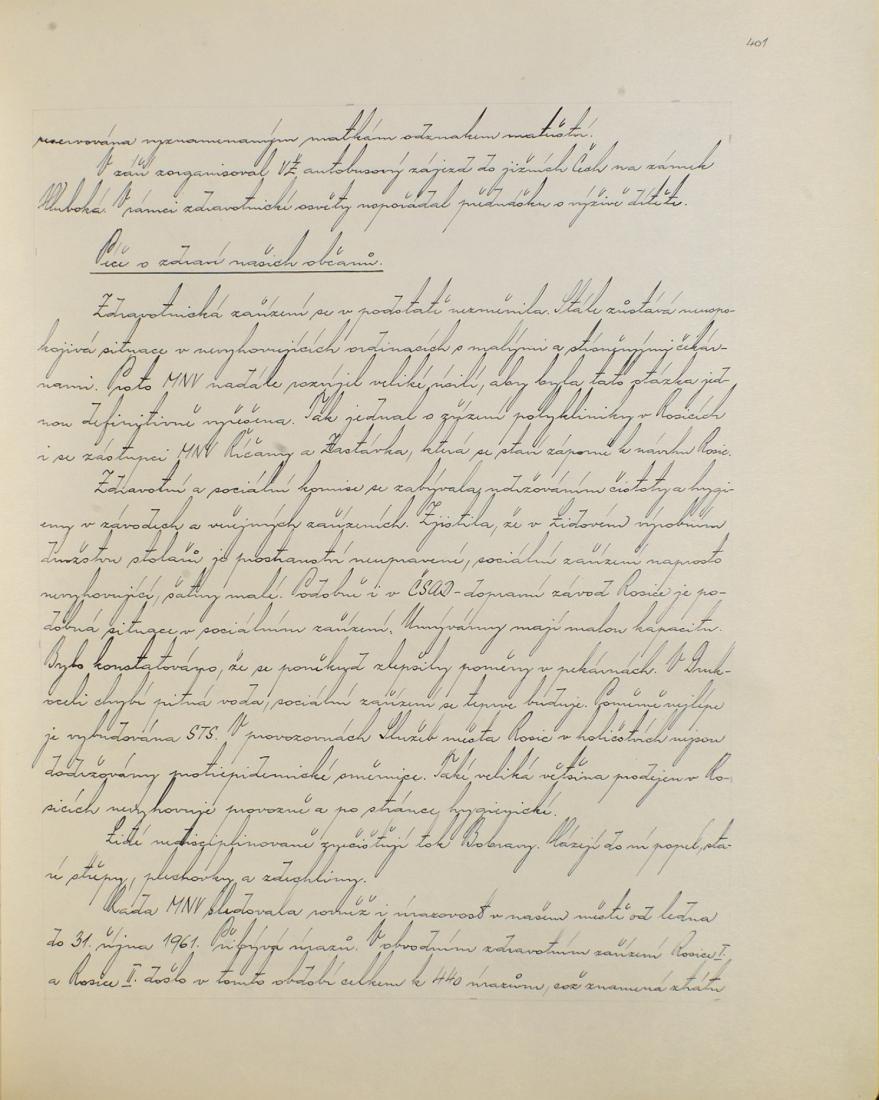 401
reservována vyznamenaným matkám odznakem mateřství.
V září zorganisoval VŽ autobusový zájezd do jižních Čech na zámek
Hluboká. V rámci zdravotnické osvěty uspořádal přednášku o výživě dítěte.
Péče o zdraví našich občanů.
Zdravotnická zařízení se v podstatě nezměnila. Stále zůstává neuspo-
kojivá situace v nevyhovujících ordinacích s malými a stísněnými čekár-
nami. Proto MNV nadále rozvíjel veliké úsilí, aby byla tato otázka jed-
nou definitivně vyřešena. Tak jednal o zřízení polykliniky v Rosicích
i se zástupci MNV Říčany a Zastávka, která se staví záporně k návrhu Rosic.
Zdravotní a sociální komise se zabývala udržováním čistoty a hygi-
eny v závodech a veřejných zařízeních. Zjistila, že v Lidovém výrobním
družstvu stolařů je prostranství neupravené, sociální zařízení naprosto
nevyhovující, šatny malé. Podobně i v ČSAD-dopravní závod Rosice je po-
dobná situace v sociálním zařízení. Umývárny mají malou kapacitu.
Bylo konstatováno, že se poněkud zlepšily poměry v pekárnách. V Druk-
oceli chybí pitná voda, sociální zařízení se teprve buduje. Poměrně nejlépe
je vybudována STS. V provozovnách Služeb města Rosic v holičstvích nejsou
dodržovány protiepidemické směrnice. Také veliká většina prodejen v Ro-
sicích nevyhovuje provozně a po stránce hygienické.
Lidé nedisciplinovaně znečisťují tok Bobravy. Házejí do ní popel, sta-
ré střepy, plechovky a zdechliny.
Rada MNV sledovala rovněž i úrazovost v našem městě od ledna
do 31. října 1961. Přibývá úrazů. V obvodním zdravotním zařízení Rosice I.
a Rosice II. došlo v tomto období celkem k 440 úrazům, což znamená ztrátu